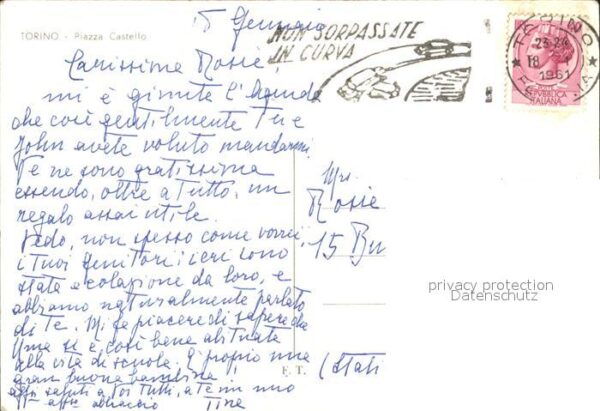 15 Gennaio
TORINO - Piazza Castello
NON SORPASSATE
IN CURVA
TORINO
23-24
18
1961
FERROVIA
REPUBBLICA
ITALIANA
Carissima Rosie,
mi è giunta l'agenda
che così gentilmente Tu e
John avete voluto mandarmi
Te ne sono gratissima
essendo, oltre a tutto, un
regalo assai utile.
Vedo, non spesso come vorrei,
i Tuoi genitori: ieri sono
stata a colazione da loro, e
abbiamo naturalmente parlato
di Te. Mi fa piacere di sapere che
si è così bene abituata
alla vita di scuola. È proprio una
gran buona bambina
saluti a Voi tutti, a Te un mio
abbraccio Tina
Mrs.
Rosie
15 Bu
(Stati
F. T.
privacy protection
Datenschutz